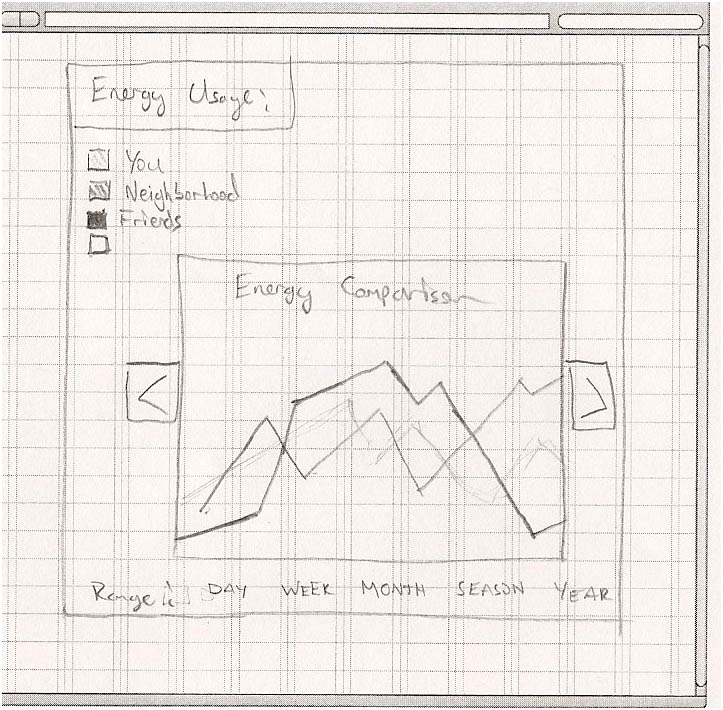 Energy Usage:
You
Neighborhood
Friends
Energy Comparison
Range: DAY WEEK MONTH SEASON YEAR